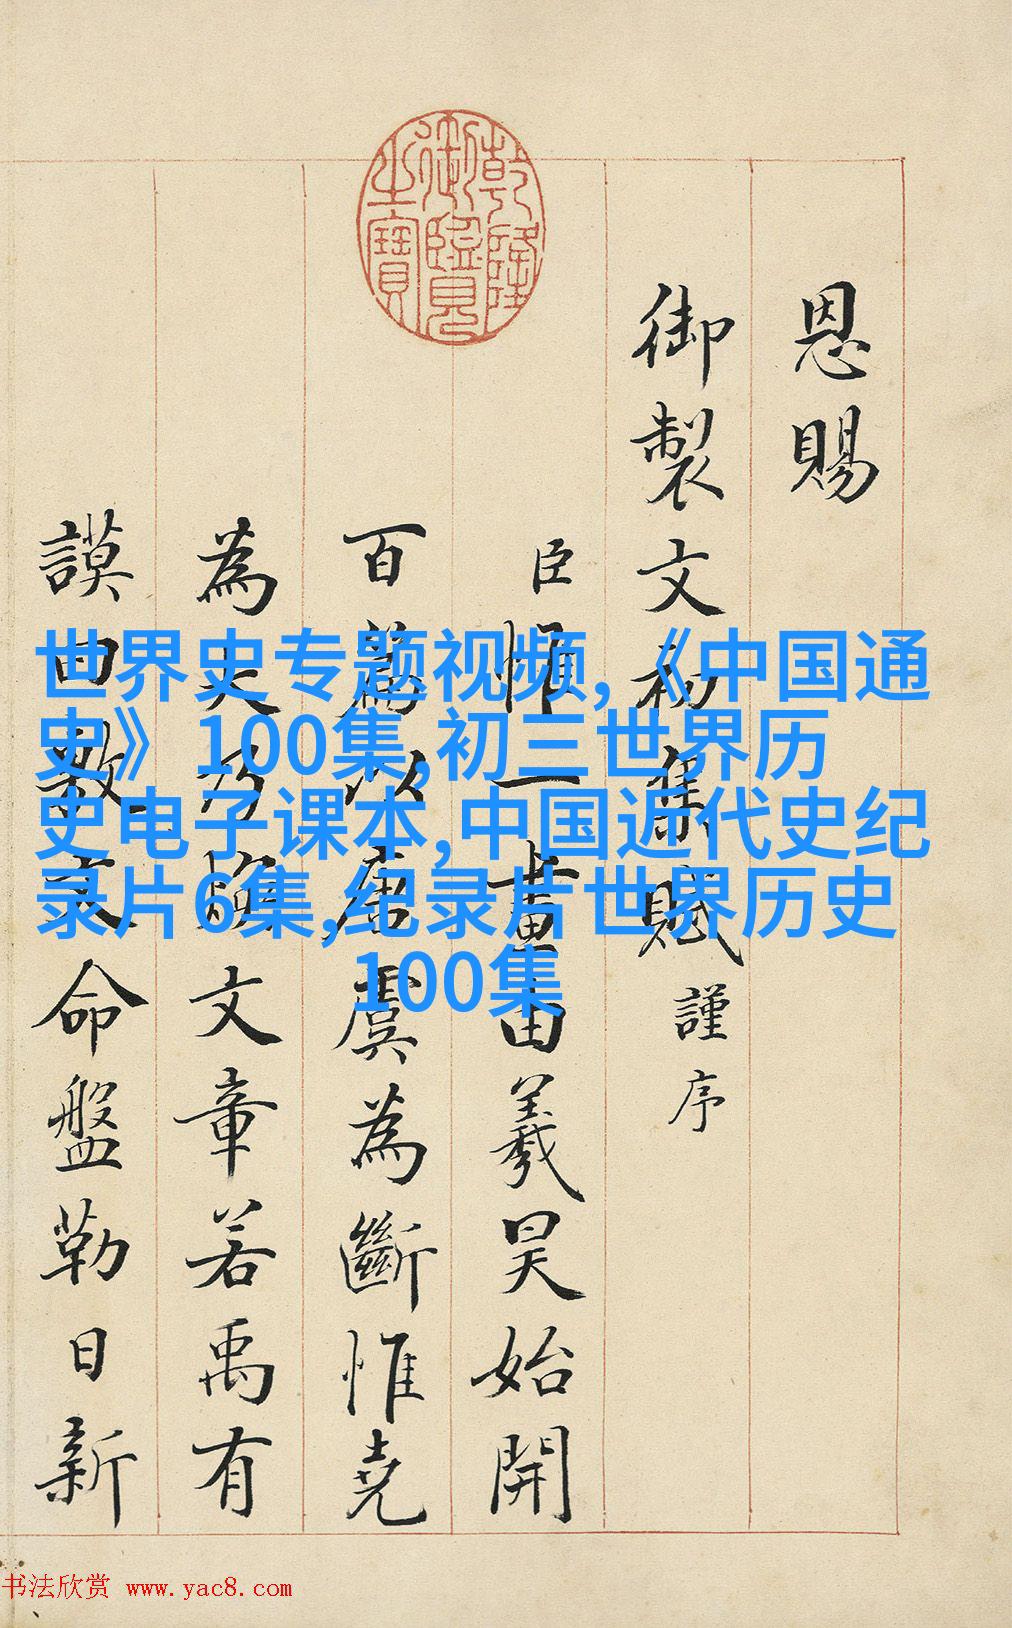 乾隆御覽之寶
恩賜
御製文初集賦謹序
臣惟一畫由羲昊始開
百篇以唐虞為斷惟堯
為大乃煥文章若禹有
謨曰敷文命盤勒日新
世界史专题视频,《中国通
史》100集,初三世界历
史电子课本,中国近代史纪
录片6集,纪录片世界历史
100集
书法欣赏 www.yac8.com